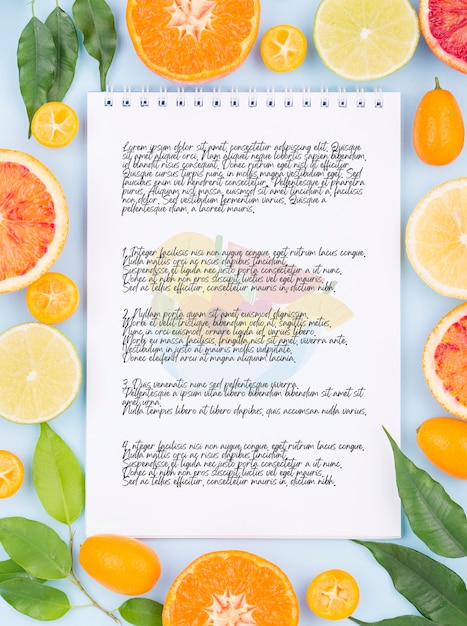 Lorem ipsum dolor sit amet, consectetur adipiscing elit. Quisque
id blandit est. Suspendisse et ligula quis arcu ultricies euismod,
aliquam arcu neque. Integer lobortis sapien, ac vulputate enim.
Quisque cursus varius turpis, at mattis turpis euismod eu. Sed
faucibus enim vel hendrerit consectetur. Pellentesque et pharetra
purus. Aliquam euismod, est sit amet tincidunt a facilisis
non dolor. Sed vestibulum fermentum varius. Quisque a
pellentesque diam, a laoreet mauris.
1. Integer facilisis nisi non augue, eget rutrum lacus congue.
Nulla mattis orci ac risus dapibus tincidunt.
Suspendisse et ligula nec justo consectetur congue.
Duis dapibus orci suscipit vestibulum varius.
Duis tellus efficitur, consectetur mauris id, dictum nibh.
2. Nullam porta quam sit amet euismod dignissim.
Morbi et velit tristique, bibendum dolor at, sagittis metus.
Nunc in orci euismod, ornare ligula at, varius libero.
Morbi ex mattis facilisis, fringilla nisl sit amet, viverra ante.
Vestibulum in justo at mauris mollis vulputate.
Donec eleifend arcu at magna aliquam lacinia.
3. Duis venenatis nunc sed pellentesque viverra.
Pellentesque a ipsum vitae libero bibendum bibendum sit amet sit
amet urna.
Nulla tempus libero at libero dapibus, quis accumsan nulla varius.
4. Integer facilisis nisi non augue, eget rutrum lacus congue.
Nulla mattis orci ac risus dapibus tincidunt.
Suspendisse et ligula nec justo consectetur congue.
Duis dapibus orci suscipit vestibulum varius.
Duis tellus efficitur, consectetur mauris id, dictum nibh.